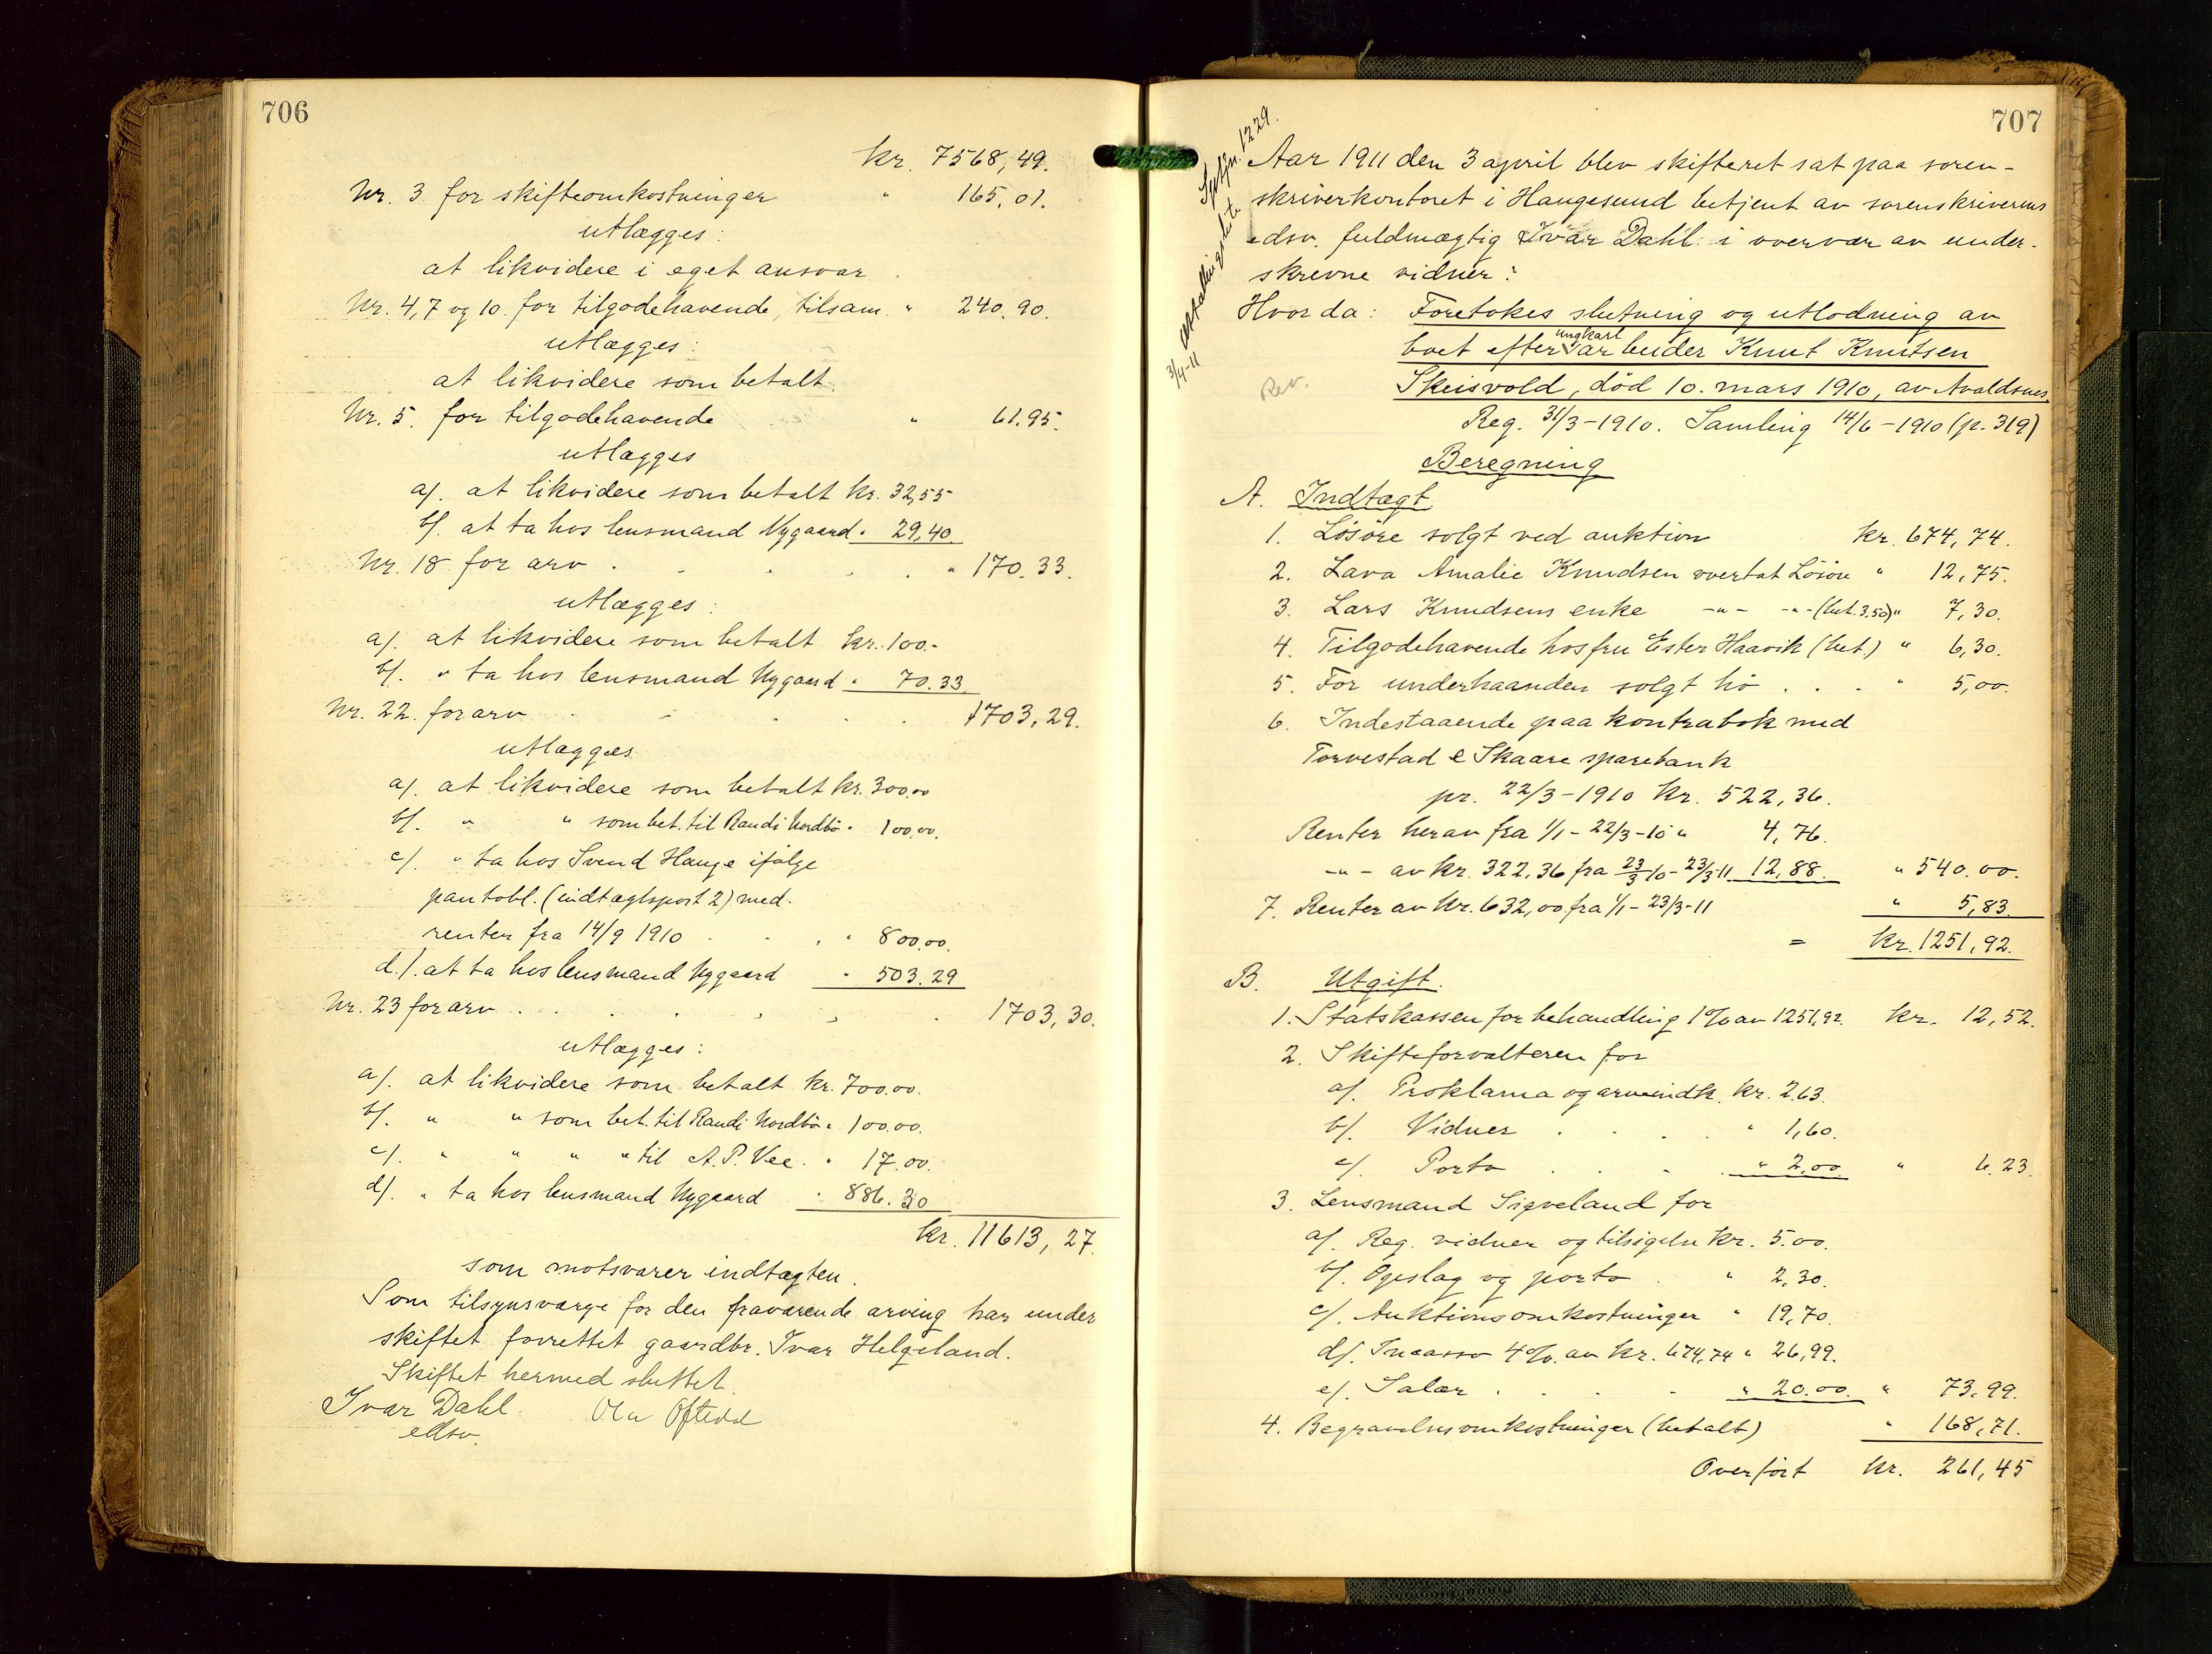 706
kr. 7568,49.
Nr. 3 for skifteomkostninger " 165.01.
utlægges:
at likvidere i eget ansvar.
Nr. 4,7 og 10. for tilgodehavende, tilsam. " 240.90.
utlægges:
at likvidere som betalt.
Nr. 5. for tilgodehavende " 61.95.
utlægges
a/. at likvidere som betalt kr. 32,55
b/. at ta hos lensmand Nygaard " 29,40.
Nr. 18 for arv . . . . " 170.33.
utlægges:
a/. at likvidere som betalt kr. 100.-
b/. " ta hos lensmand Nygaard " 70.33
Nr. 22. for arv . . . . 1703,29.
utlægges
a/. at likvidere som betalt kr. 300,00
b/. " " som bet. til Randi Nordbö " 100.00.
c/. " ta hos Svend Hauge ifølge
pantobl. (indtægtspost 2) med.
renter fra 14/9 1910 . . . " 800.00.
d./. at ta hos lensmand Nygaard " 503.29
Nr. 23 for arv . . . . . 1703,30.
utlægges:
a/. at likvidere som betalt kr. 700.00.
b/. " " som bet. til Randi Nordbö " 100.00.
c/. " " " " til A. P. Vee. " 17.00.
d/. " ta hos lensmand Nygaard " 886.30
kr. 11613,27.
som motsvarer indtægten.
Som tilsynsværge for den fraværende arving har under
skiftet forrettet gaardbr. Ivar Helgeland.
Skiftet hermed sluttet.
Ivar Dahl. Ola Oftedal
edsv.
707
1229.
3/4-11
Aar 1911 den 3 april blev skifteret sat paa soren-
skriverkontoret i Haugesund betjent av sorenskriverens
edsv. fuldmægtig Ivar Dahl i overvær av under-
skrevne vidner:
Hvor da: Foretokes slutning og utlodning av
boet efter ungkarl arbeider Knut Knutsen
Rev.
Skeisvold, död 10. mars 1910, av Avaldsnes.
Reg. 31/3-1910. Samling 14/6-1910 (p. 319)
Beregning
A. Indtægt
1. Lösöre solgt ved auktion kr. 674,74.
2. Lava Amalie Knudsen overtat Lösöre " 12,75.
3. Lars Knudsens enke -"- -"- (bet. 3,50) " 7,30.
4. Tilgodehavende hos fru Ester Haavik (bet.) " 6,30.
5. For underhaanden solgt hö . . . " 5,00.
6. Indestaaende paa kontrabok med
Torvestad & Skaare sparebank
pr. 22/3-1910 kr. 522,36.
Renter herav fra 1/1 - 22/3-10 " 4,76.
-"- av kr. 322,36 fra 23/3 10 - 23/3 11 12,88. " 540.00.
7. Renter av kr. 632,00 fra 1/1 - 23/3-11 " 5,83.
= kr. 1251,92.
B. Utgift.
1. Statskassen for behandling 1% av 1251,92. kr. 12,52.
2. Skifteforvalteren for
a/. Proklama og arveindk. kr. 2.63.
b/. Vidner . . . . " 1,60.
c/. Porto . . . " 2,00 " 6.23.
3. Lensmand Sigveland for
a/. Reg. vidner og tilsigelse kr. 5.00.
b/. Opslag og porto . " 2,30.
c/. Auktionsomkostninger " 19,70.
d/. Incasso 4%. av kr. 674,74 " 26,99.
e/. Salær . . . . " 20.00. " 73,99.
4. Begravelsesomkostninger (betalt) " 168,71.
Overfört kr. 261,45